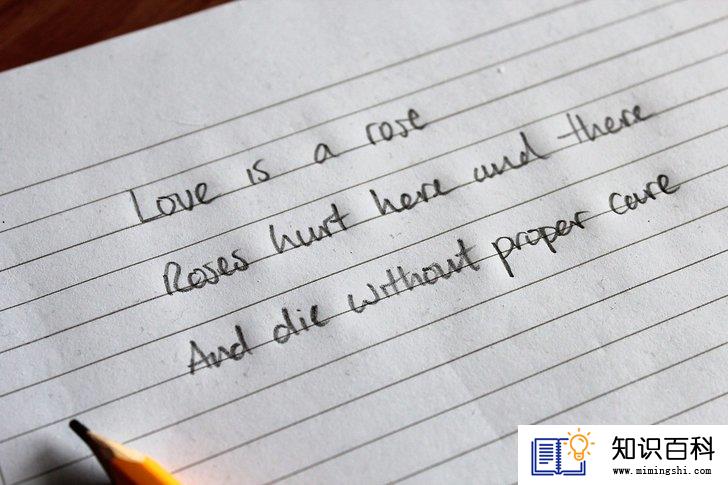 Love is a rose
Roses hurt here and there
And die without proper care
知识百科
www.mimingshi.com